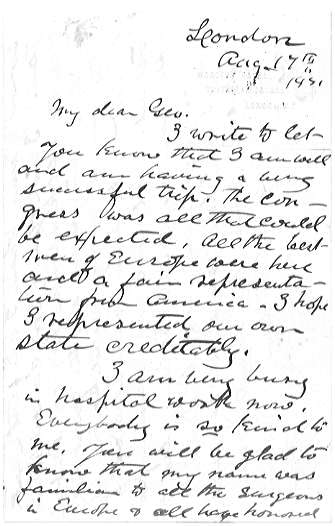 London
Aug 17th
1881
My dear Geo.
I write to let
you know that I am well
and am having a very
successful trip. The con-
gress was all that could
be expected. All the best
men of Europe were here
and a fair representa-
tion from America - I hope
I represented our own
state creditably.
I am very busy
in hospital work now.
Everybody is so kind to
me. You will be glad to
know that my name was
familiar to all the surgeons
in Europe & all have honored